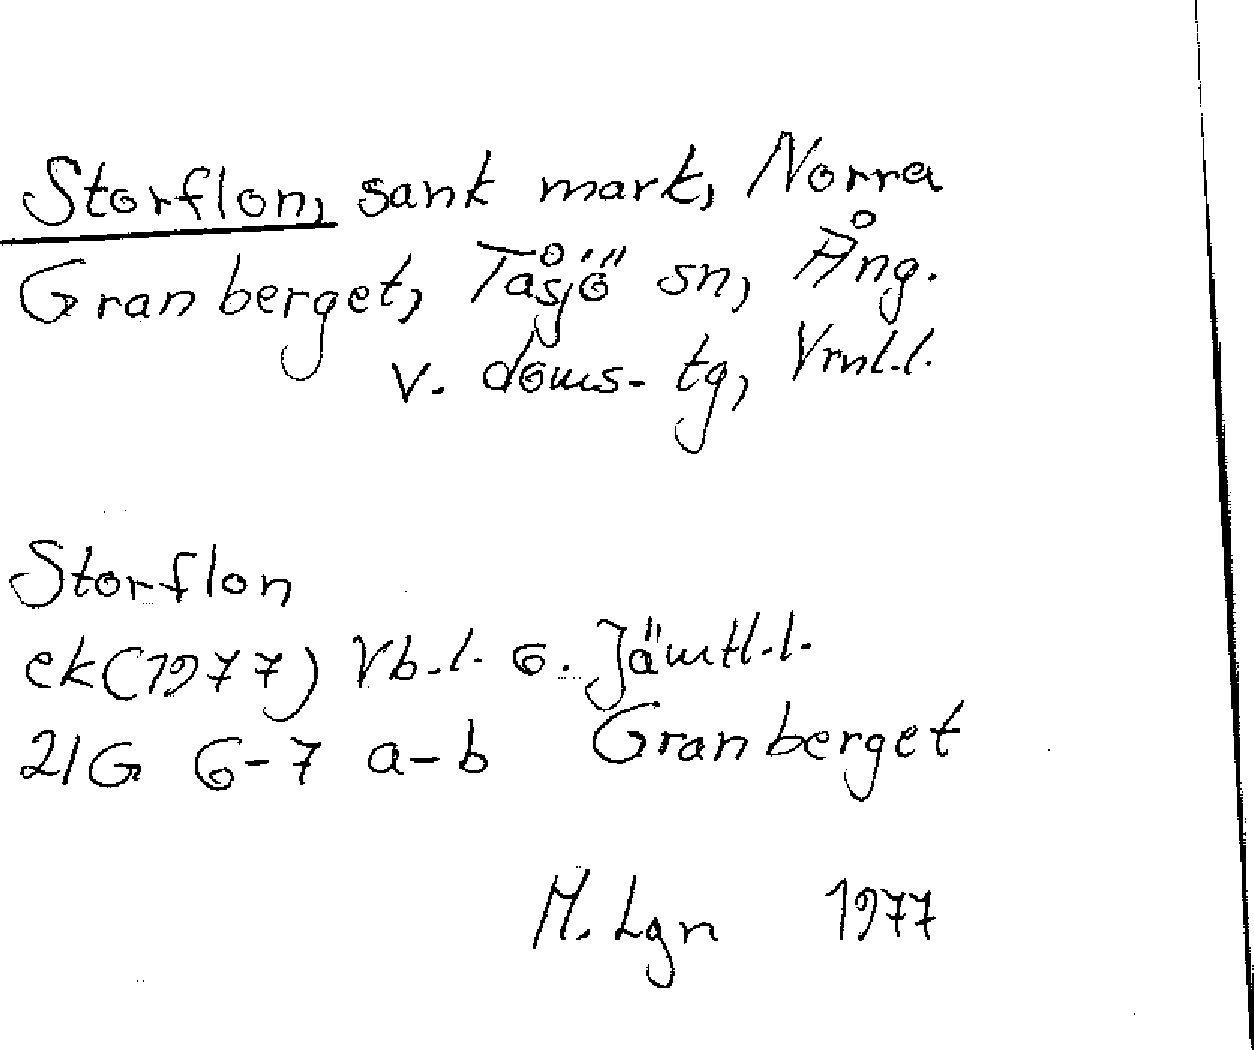 Storflon, sank mark, Norra
Granberget, Tåsjö sn, Ång.
v. doms- tg, Vrnl.l.
Storflon
ek(1977) Vb.l. o. Jämtl.l.
21G 6-7 a-b Granberget
M. Lgn 1977